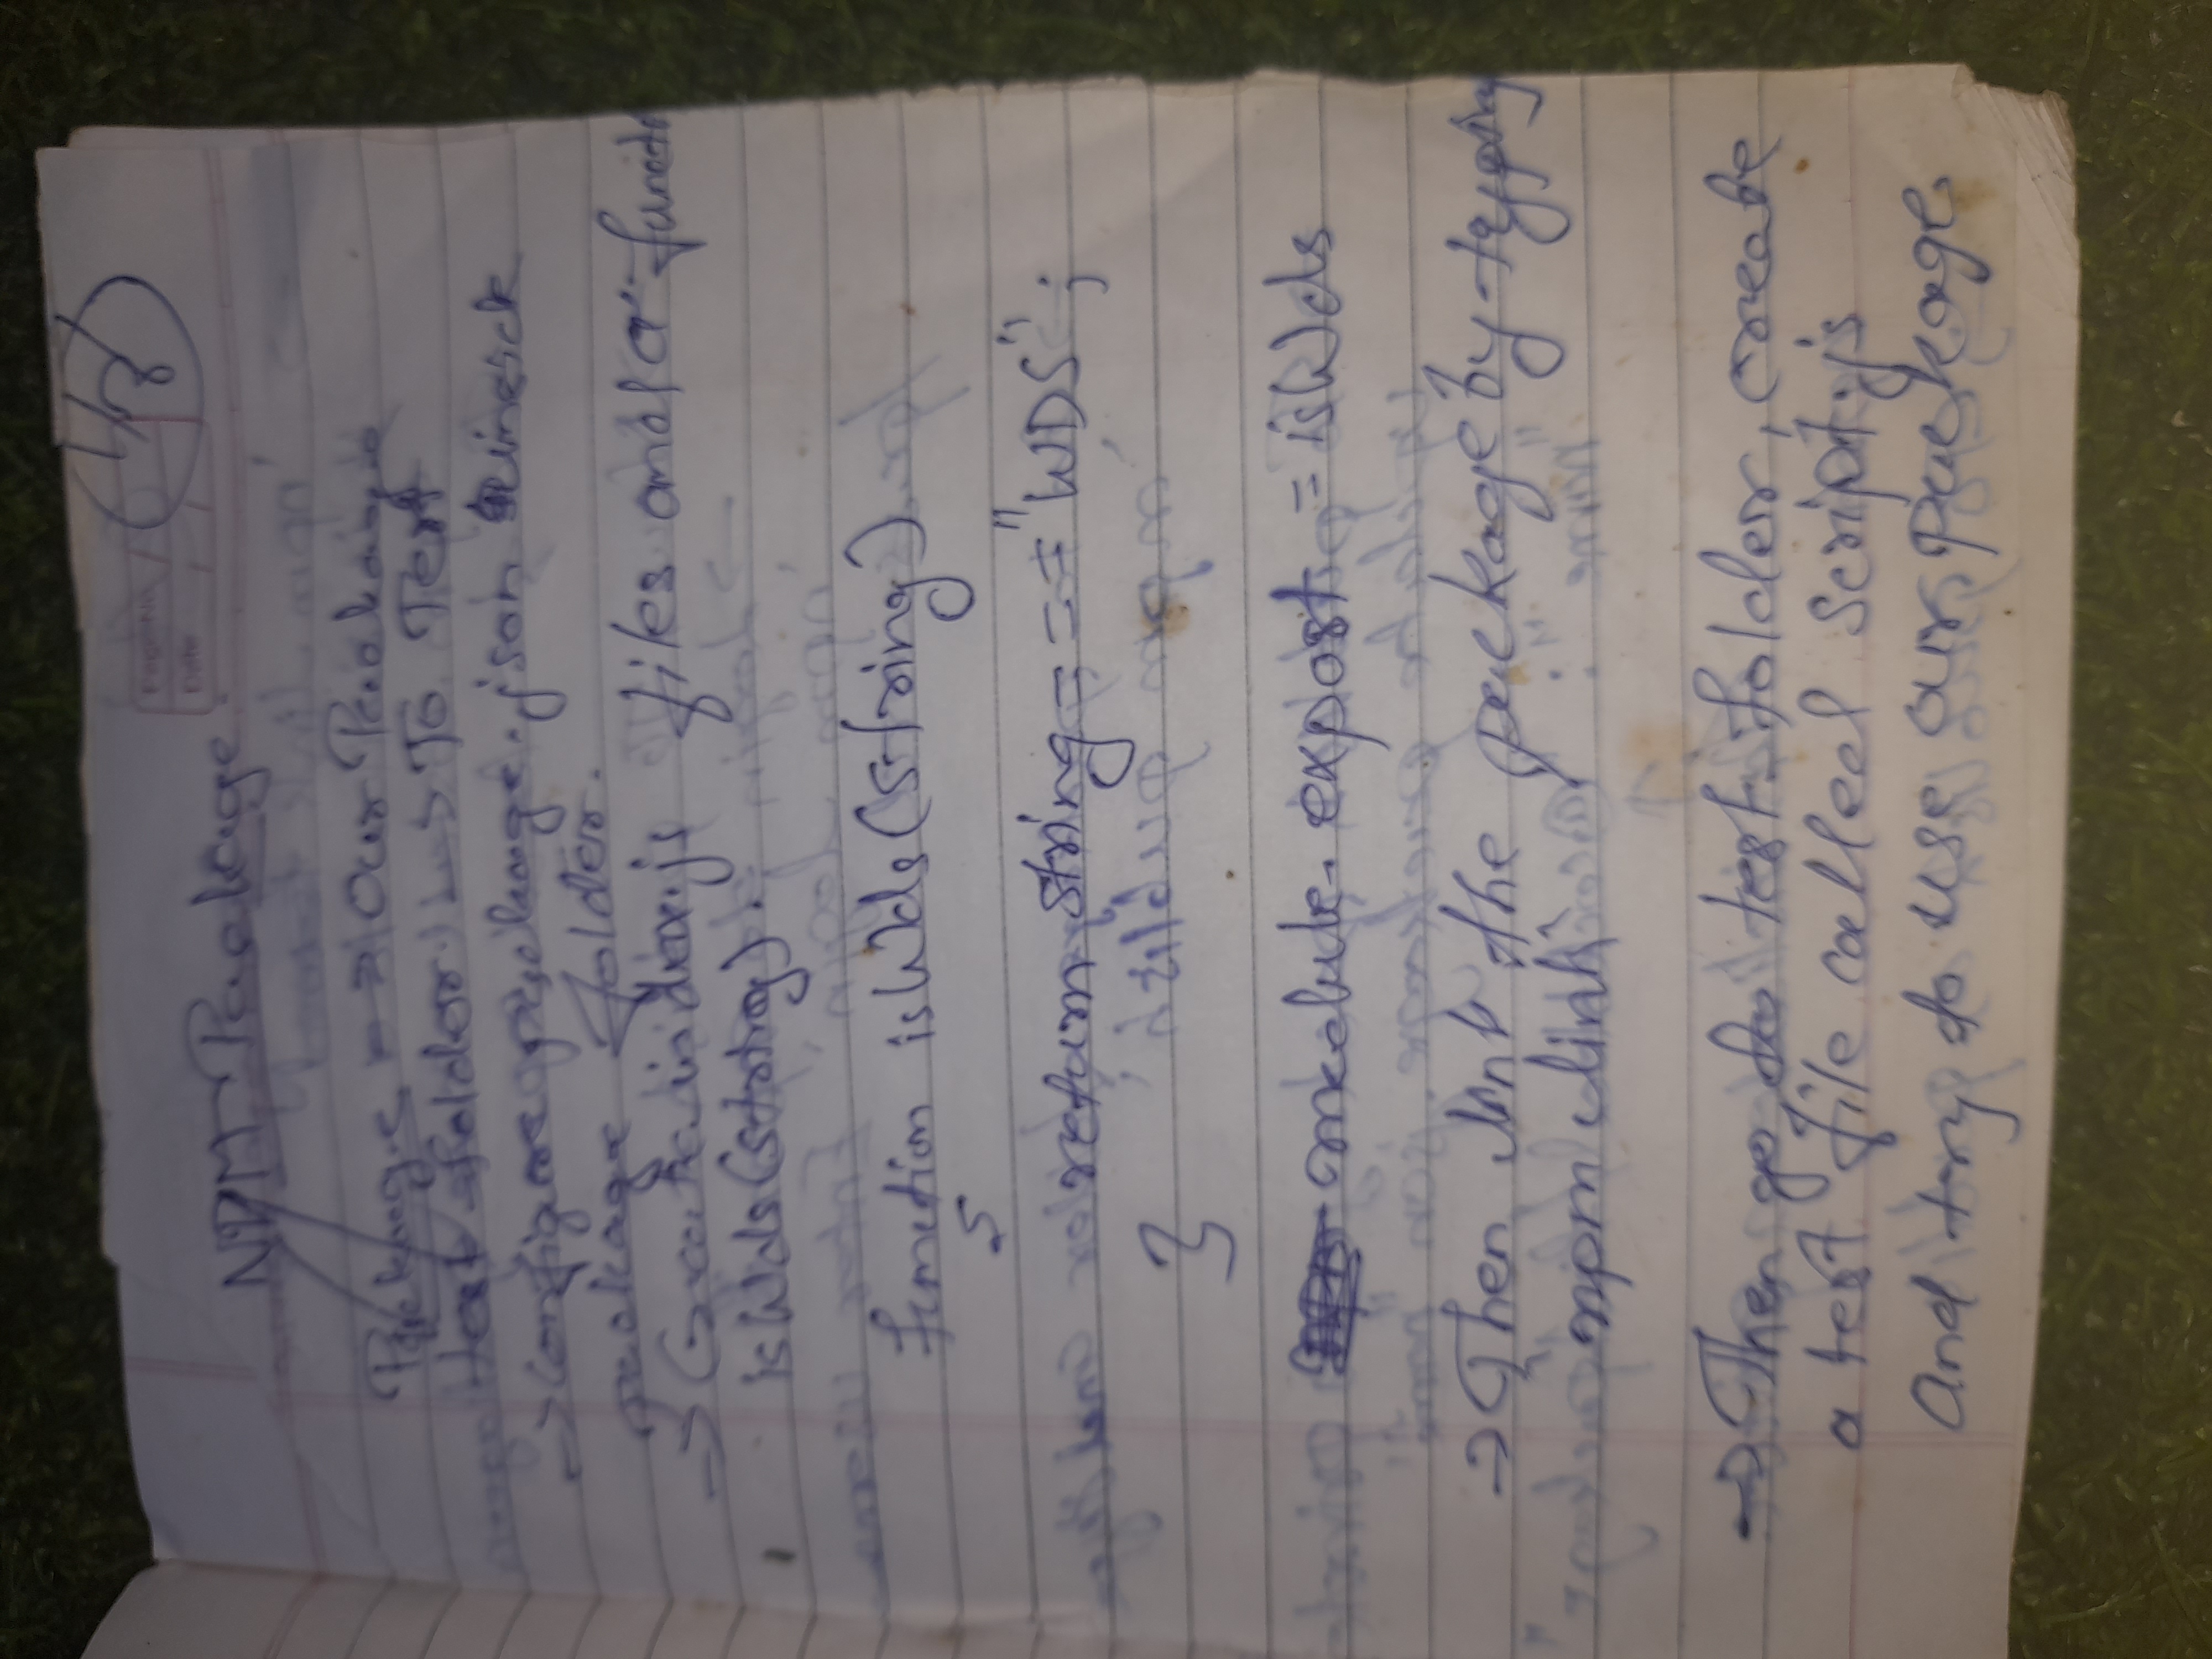 Page No
Date
NPM Package
Package → Our Package
test folder → To Test
→ Configure package.json inside
package folder.
→ Create index.js files and a functi
isWds(string).
function isWds(string)
{
return string === "WDS";
}
module.export = isWds
→ Then link the package by typing
'npm link'
→ Then go to test folder, create
a test file called script.js
and try to use our package